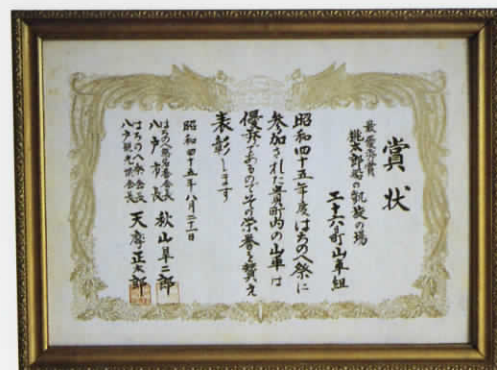 賞状
最優秀賞
桃太郎船の凱旋の場
二十六町山車組
昭和四十五年度はちのへ祭に
参加された貴町内の山車は
優秀であるのでその栄誉を賛え
表彰します
昭和四十五年八月二十二日
八戸市長 秋山皐二郎
はちのへ祭会長
八戸観光協会長 天摩正太郎